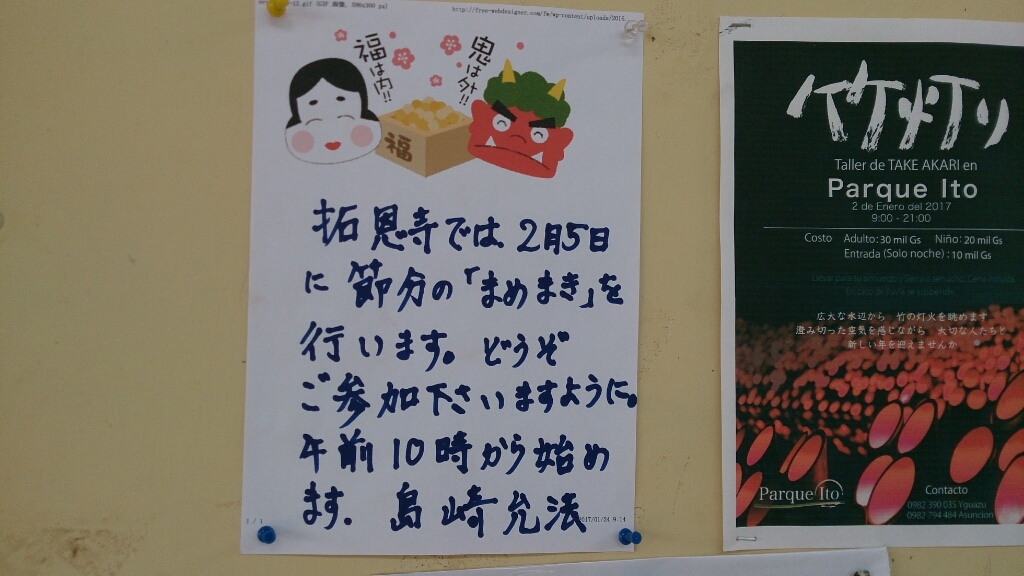 http://free-webdesigner.com/fw/wp-content/uploads/2015.
福は内!!
鬼は外!!
福
拓恩寺では 2月5日
に 節分の「まめまき」を
行います。どうぞ
ご参加下さいますように。
午前10時から始め
ます. 島崎允法
1 / 1
2017/01/24 9:14
竹灯り
Taller de TAKE AKARI en
Parque Ito
2 de Enero del 2017
9:00 - 21:00
Costo Adulto: 30 mil Gs Niño: 20 mil Gs
Entrada (Solo noche) : 10 mil Gs
広大な水辺から 竹の灯火を眺めます
澄み切った空気を感じながら 大切な人たちと
新しい年を迎えませんか
Parque Ito
Contacto
0982 390 035 Yguazu
0982 794 484 Asuncion